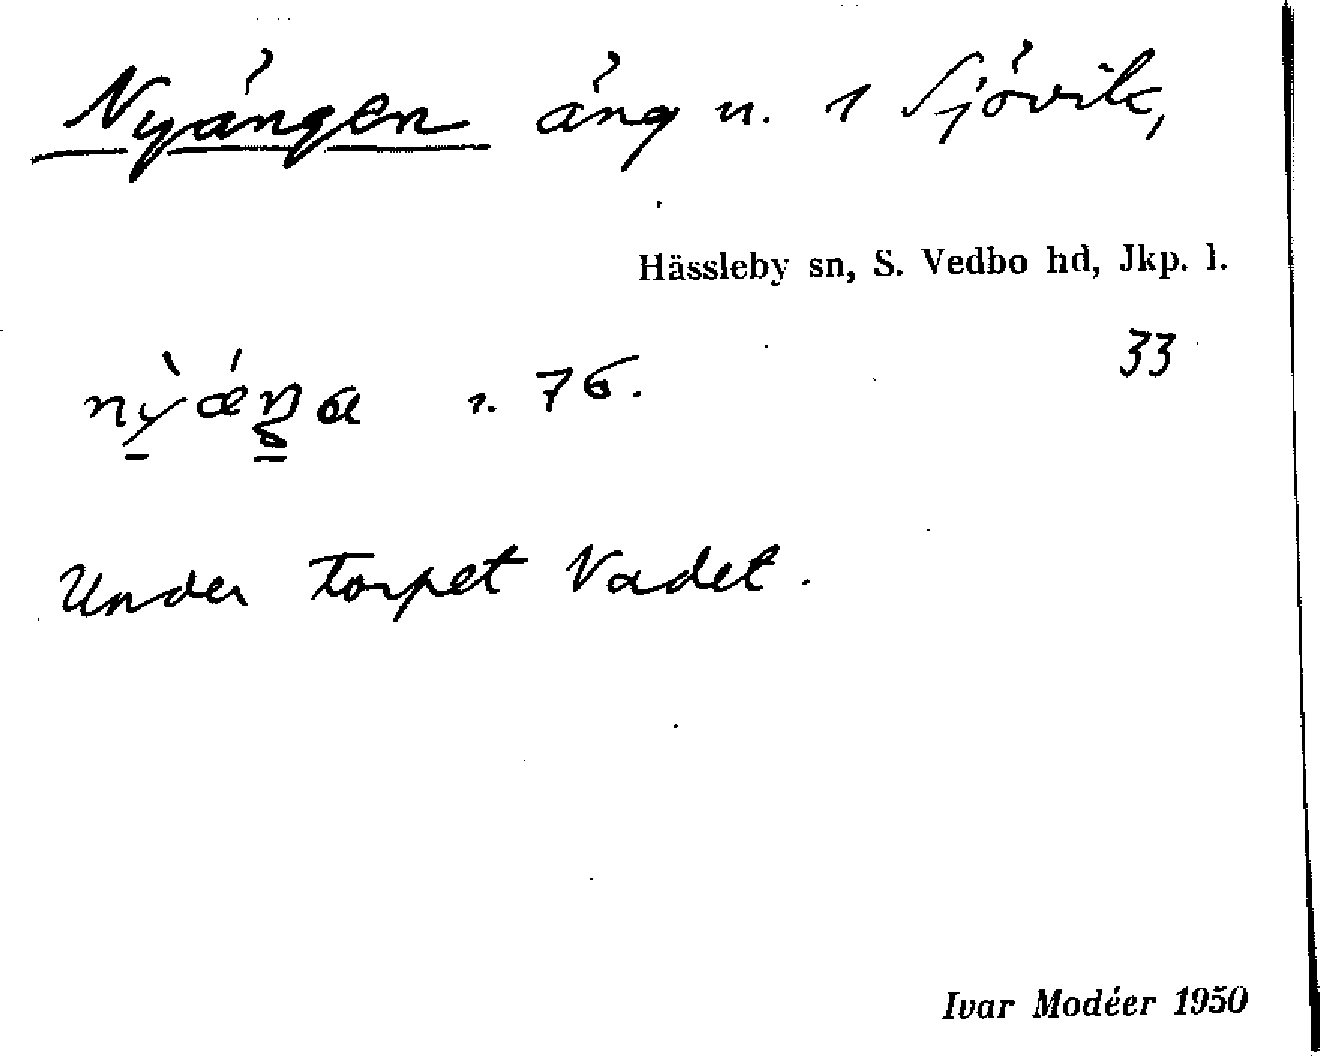 Nyängen äng u. 1 Sjövik,
Hässleby sn, S. Vedbo hd, Jkp. l.
33
r. 76.
Under torpet Vadet.
Ivar Modéer 1950